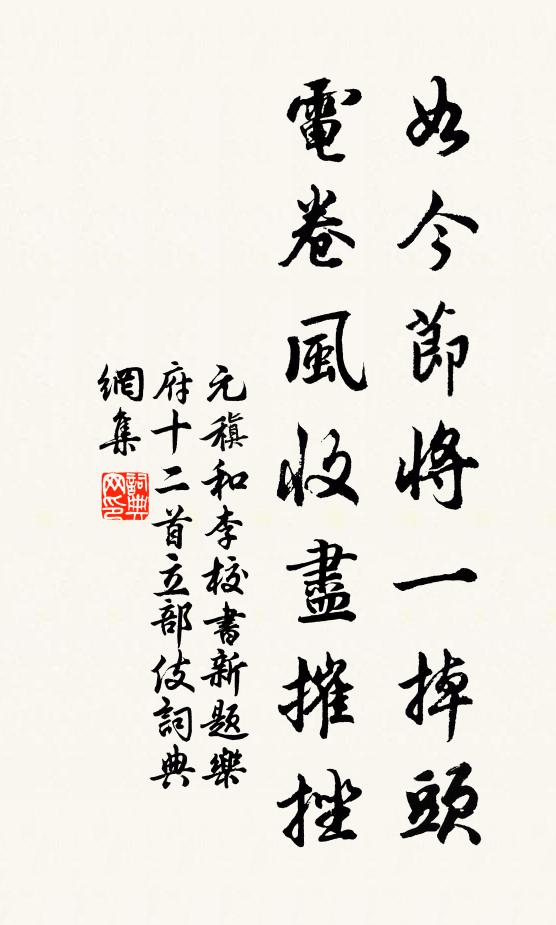 如今節將一掉頭
電卷風收盡摧挫
元稹和李校書新题樂
府十二首立部伎詞典
網集
詞典網印